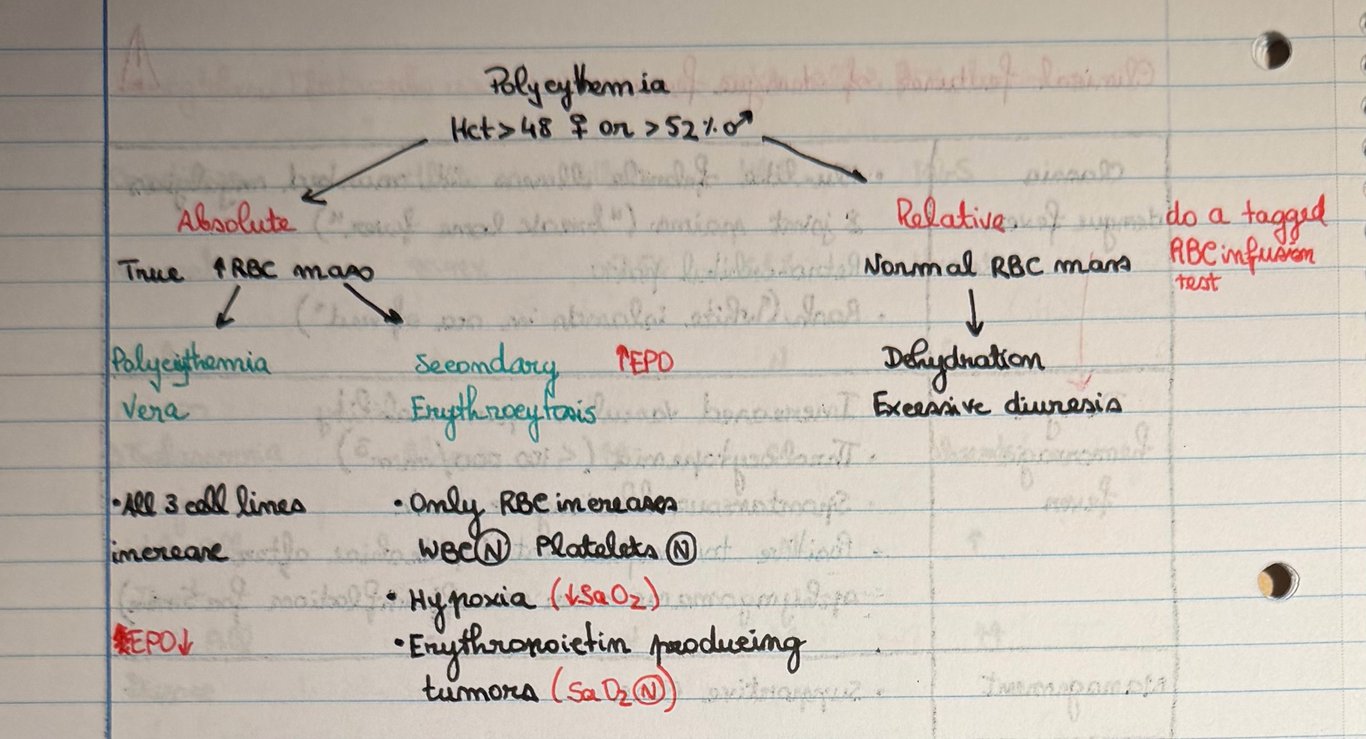 Polycythemia
Hct > 48 ♀ or > 52% ♂
Absolute
True ↑RBC mass
Relative
Normal RBC mass
do a tagged
RBC infusion
test
Polycythemia
Vera
Secondary ↑EPO
Erythrocytosis
Dehydration
Excessive diuresis
• All 3 cell lines
increase
EPO↓
• Only RBC increases
WBC Ⓝ Platelets Ⓝ
• Hypoxia (↓SaO2)
• Erythropoietin producing
tumors (SaO2 Ⓝ)